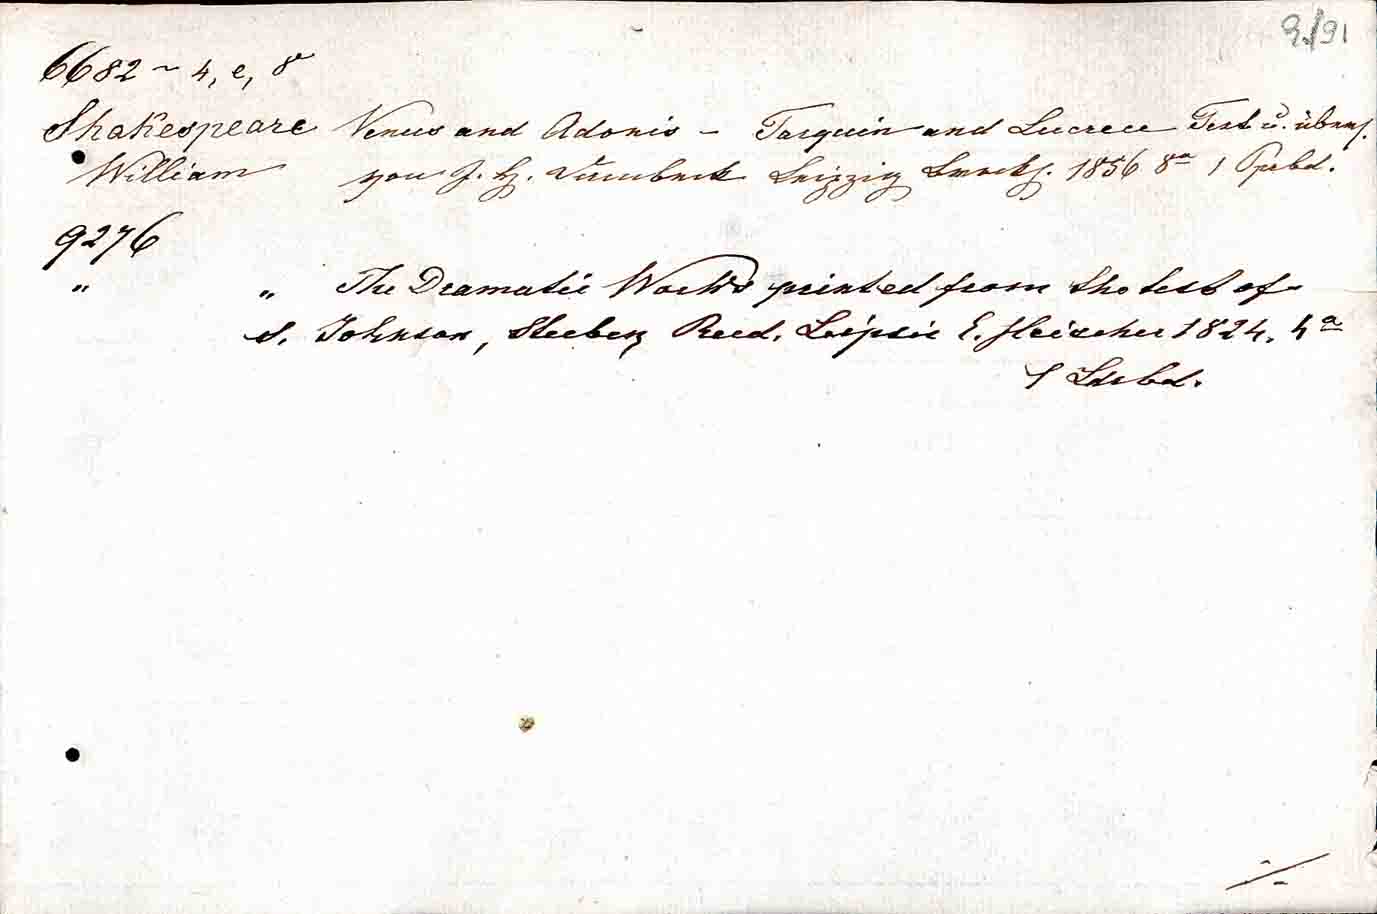 9./91
6682 ~ 4, e, 8°
Shakespeare Venus and Adonis – Tarquin and Lucrece Text u. übers.
William von J. H. Dambeck Leipzig Brockh. 1856 8° 1 Ppbd.
9276
" " The Dramatic Works printed from the text of
S. Johnson, Steevens Reed. Leipsic E. Fleischer 1824. 4°
1 Lwbd.